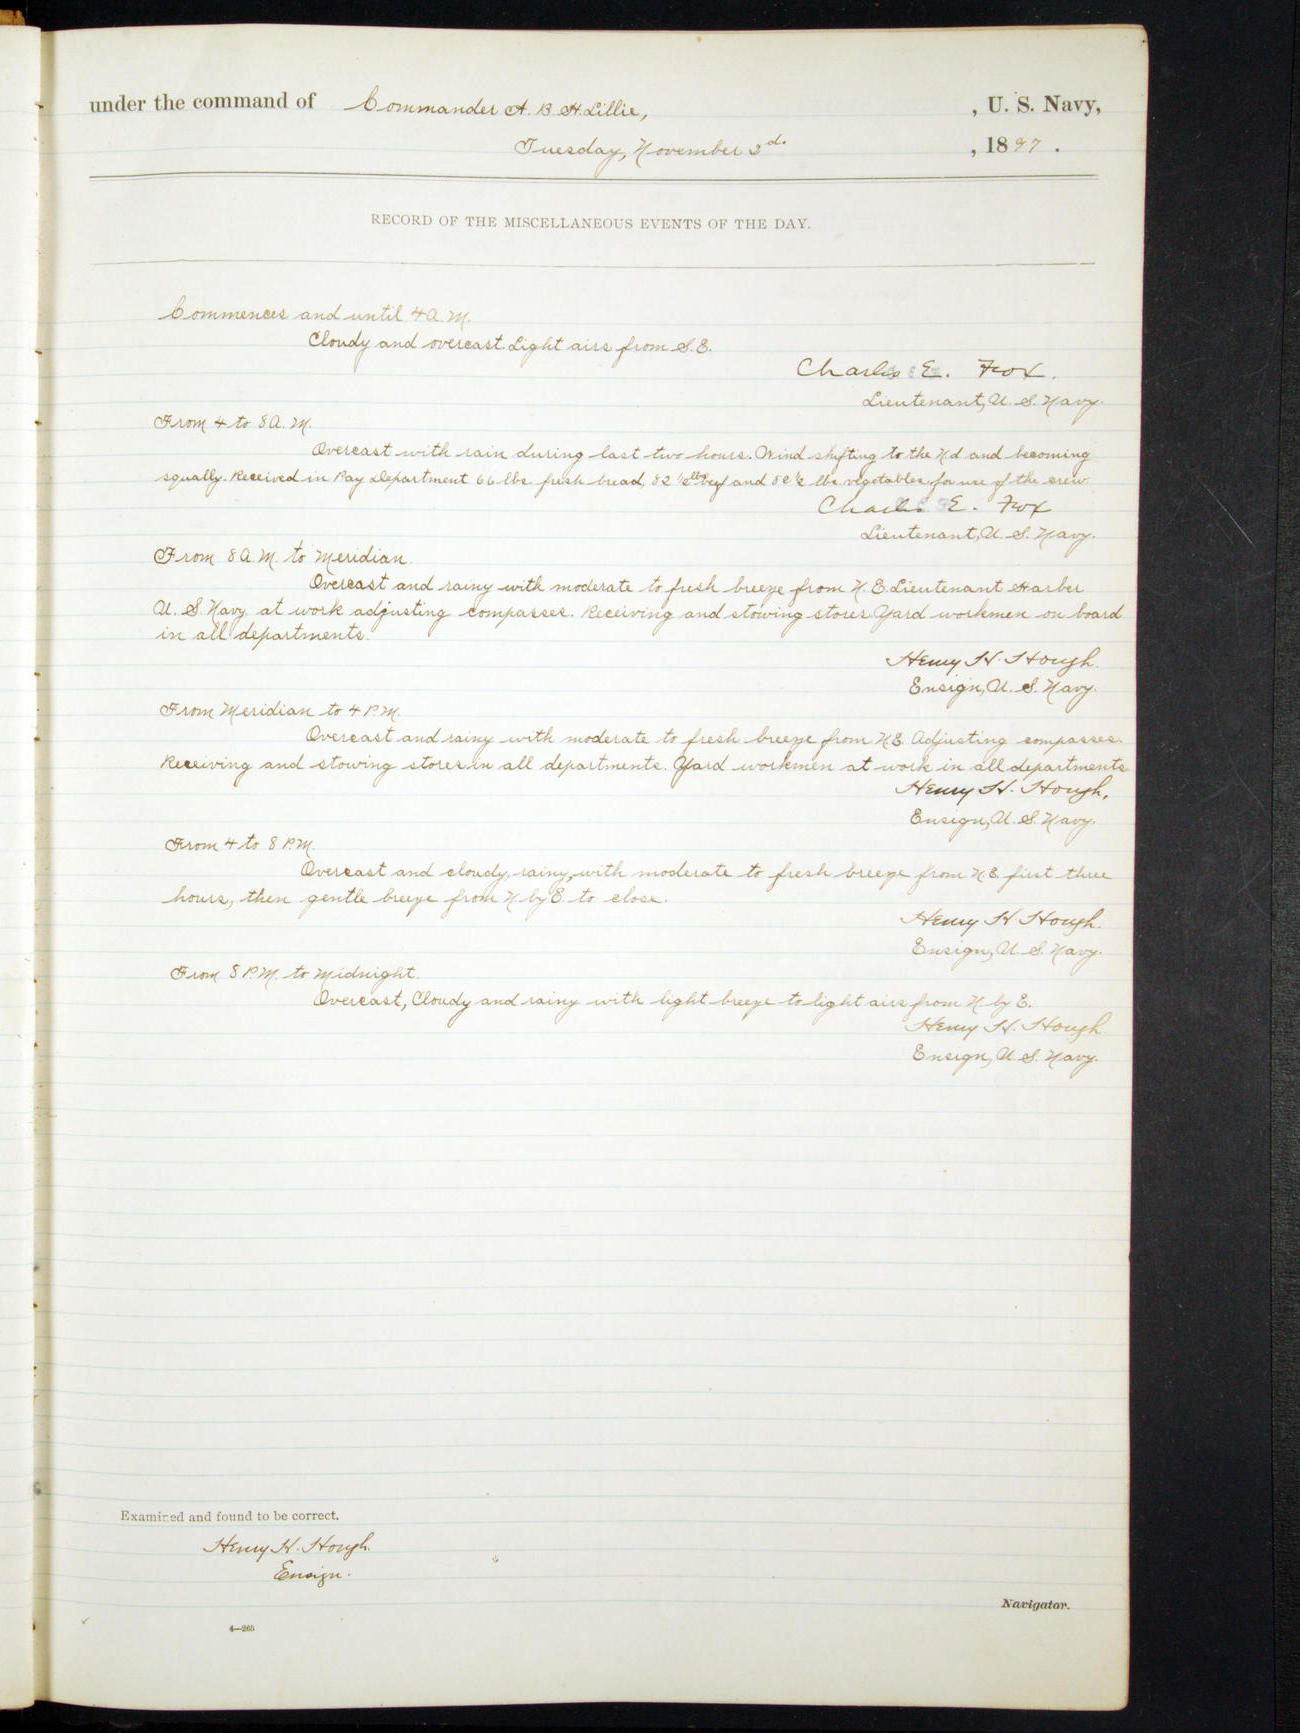 under the command of Commander A. B. H. Lillie, , U. S. Navy,
Tuesday, November 2d. , 1897.
RECORD OF THE MISCELLANEOUS EVENTS OF THE DAY.
Commences and until 4 A. M.
Cloudy and overcast. Light airs from S. E.
Charles E. Fox.
Lieutenant, U. S. Navy.
From 4 to 8 A. M.
Overcast with rain during last two hours. Wind shifting to the Nd and becoming
squally. Received in Pay Department 66 lbs fresh bread, 82 1/2 lbs beef and 82 1/2 lbs vegetables for use of the crew.
Charles E. Fox
Lieutenant, U. S. Navy.
From 8 A. M. to Meridian.
Overcast and rainy with moderate to fresh breeze from N. E. Lieutenant Harber
U. S. Navy at work adjusting compasses. Receiving and stowing stores. Yard workmen on board
in all departments.
Henry H. Hough.
Ensign, U. S. Navy.
From Meridian to 4 P.M.
Overcast and rainy with moderate to fresh breeze from N.E. Adjusting compasses.
Receiving and stowing stores in all departments. Yard workmen at work in all departments
Henry H. Hough,
Ensign, U. S. Navy.
From 4 to 8 P.M.
Overcast and cloudy, rainy, with moderate to fresh breeze from N.E. first three
hours, then gentle breeze from N by E. to close.
Henry H Hough.
Ensign, U. S. Navy.
From 8 P.M. to Midnight.
Overcast, Cloudy and rainy with light breeze to light airs from N by E.
Henry H. Hough
Ensign, U. S. Navy.
Examined and found to be correct.
Henry H. Hough.
Ensign.
Navigator.
4—265